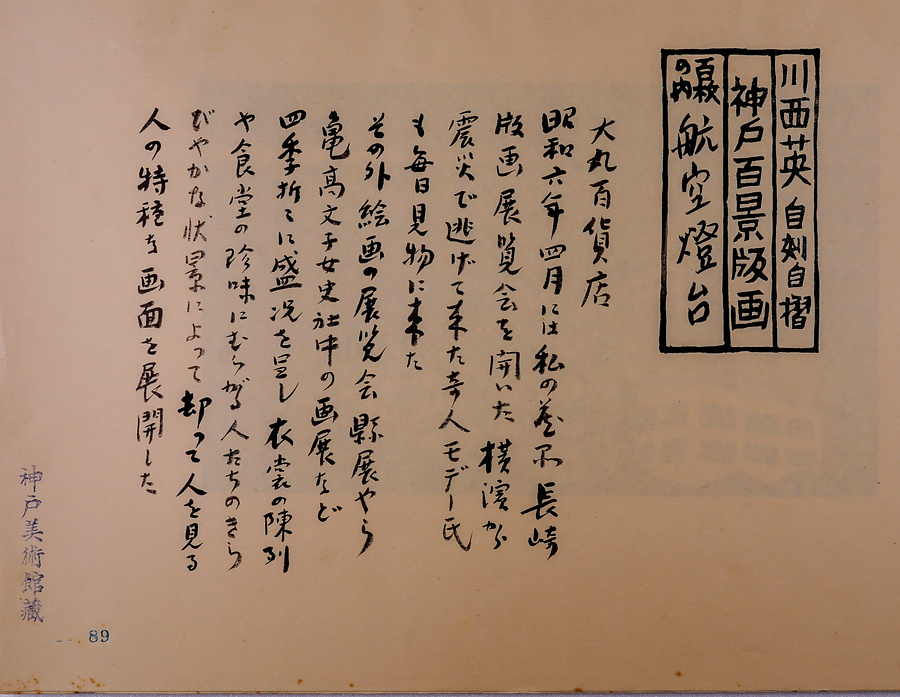 川西英 自刻自摺
神戸百景版画
百景の内 航空燈台
大丸百貨店
昭和六年四月には私の 長崎
版画展覧会を開いた 横濱から
震災で逃げて来た奇人モデー氏
も毎日見物に来た
その外絵画の展覧会縣展やら
亀高文子女史社中の画展など
四季折々に盛況を呈し 衣裳の陳列
や食堂の珍味にむらがる人たちのきら
びやかな状景によって却って人を見る
人の特種な画面を展開した
神戸美術館蔵
89